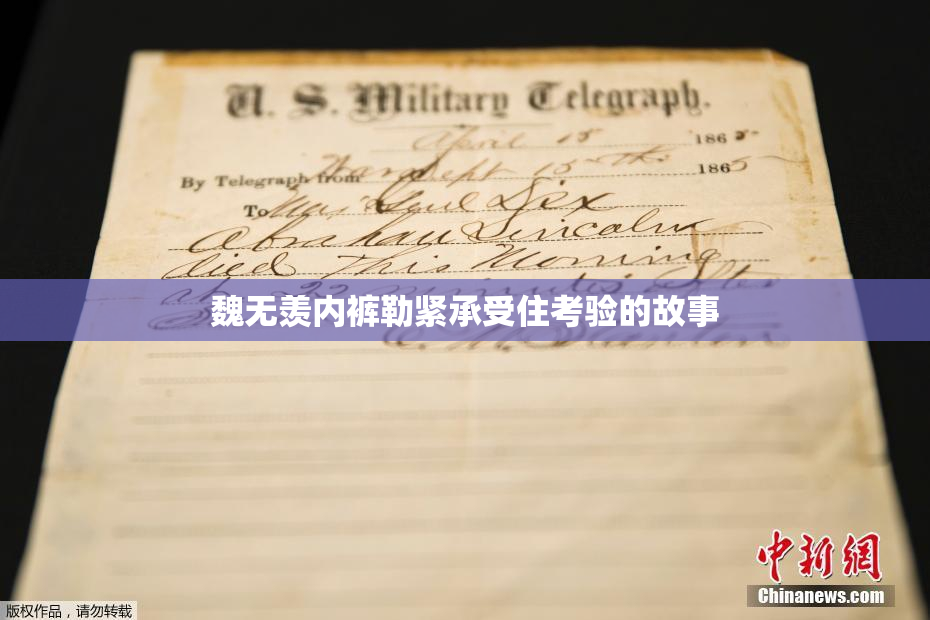 U. S. Military Telegraph.
April 15 1865
By Telegraph from War Dept 15th 1865
To Maj Genl Dix
Abraham Lincoln
died This Morning
at 22 minutes after
魏无羡内裤勒紧承受住考验的故事
E. M. Stanton
中新网
Chinanews.com
版权作品，请勿转载